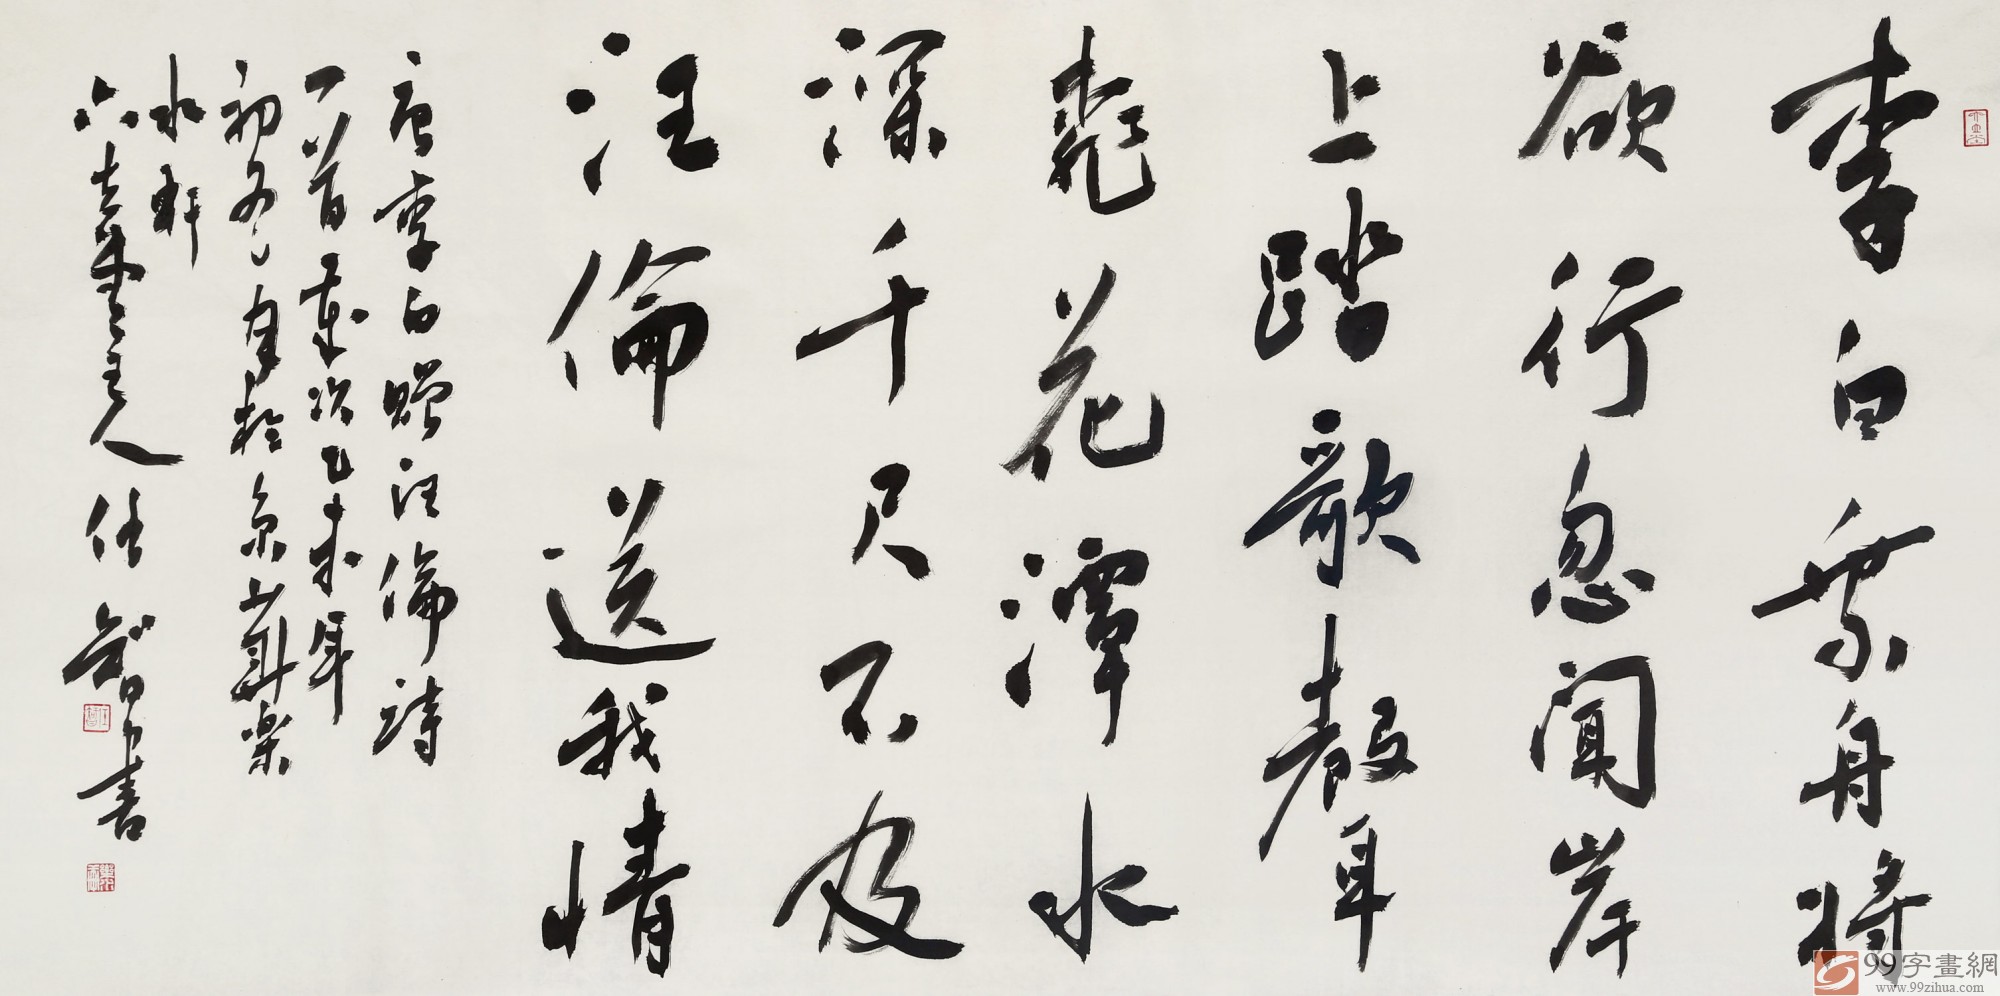 李白乘舟將
欲行忽聞岸
上踏歌聲
桃花潭水
深千尺不及
汪倫送我情
唐李白贈汪倫詩
一首歲次乙未年
初冬月於京華樂
水軒
六吉堂主人任智書
99字畫網
www.99zihua.com